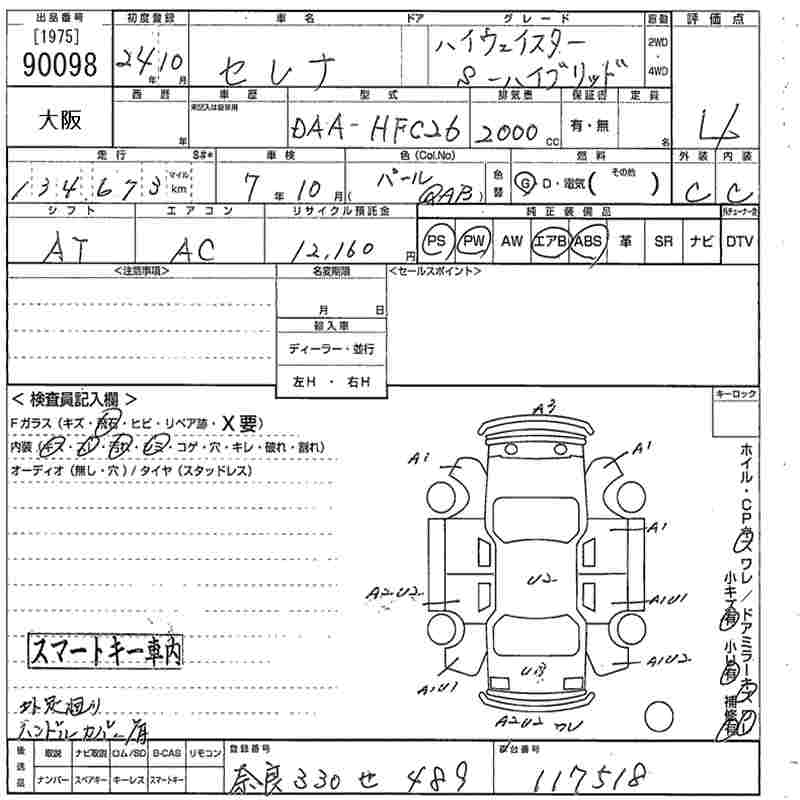 出品番号 初度登録 車名 ドア グレード 駆動 評価点
[1975]
90098 24年10月 セレナ ハイウェイスター 2WD
S-ハイブリッド ・4WD
大阪 西暦 車歴 型式 排気量 保証書 定員
未記入は自家用
年 DAA-HFC26 2000cc 有・無 名
走行 S#* 車検 色(Col.No) 色替 燃料 外装 内装
134,673 マイル km 7年10月 パール(QAB) G・D・電気(その他) C C
シフト エアコン リサイクル預託金 純正装備品
AT AC 12,160円 PS PW AW エアB ABS 革 SR ナビ DTV
<注意事項> 名変期限 <セールスポイント>
月 日
輸入車
ディーラー・並行
左H ・ 右H
<検査員記入欄> キーロック
Fガラス (キズ・飛石・ヒビ・リペア跡・X要)
内装 (キズ・スレ・汚れ・シミ・コゲ・穴・キレ・破れ・割れ)
オーディオ (無し・穴) / タイヤ (スタッドレス)
A3
A1 A1
A1
U2
A2U2 A1U1
A1U1 U3 A1U2
A2U2 ワレ
ホイル・CPキズ ワレ / ドアミラーキズ ワレ
小キズ有 小U有 補修有
スマートキー車内
ハンドルカバー有
後送品 取説 ナビ取説 ロム/SD B-CAS リモコン 登録番号 車台番号
ナンバー スペアキー キーレス スマートキー 奈良 330 せ 489 117518